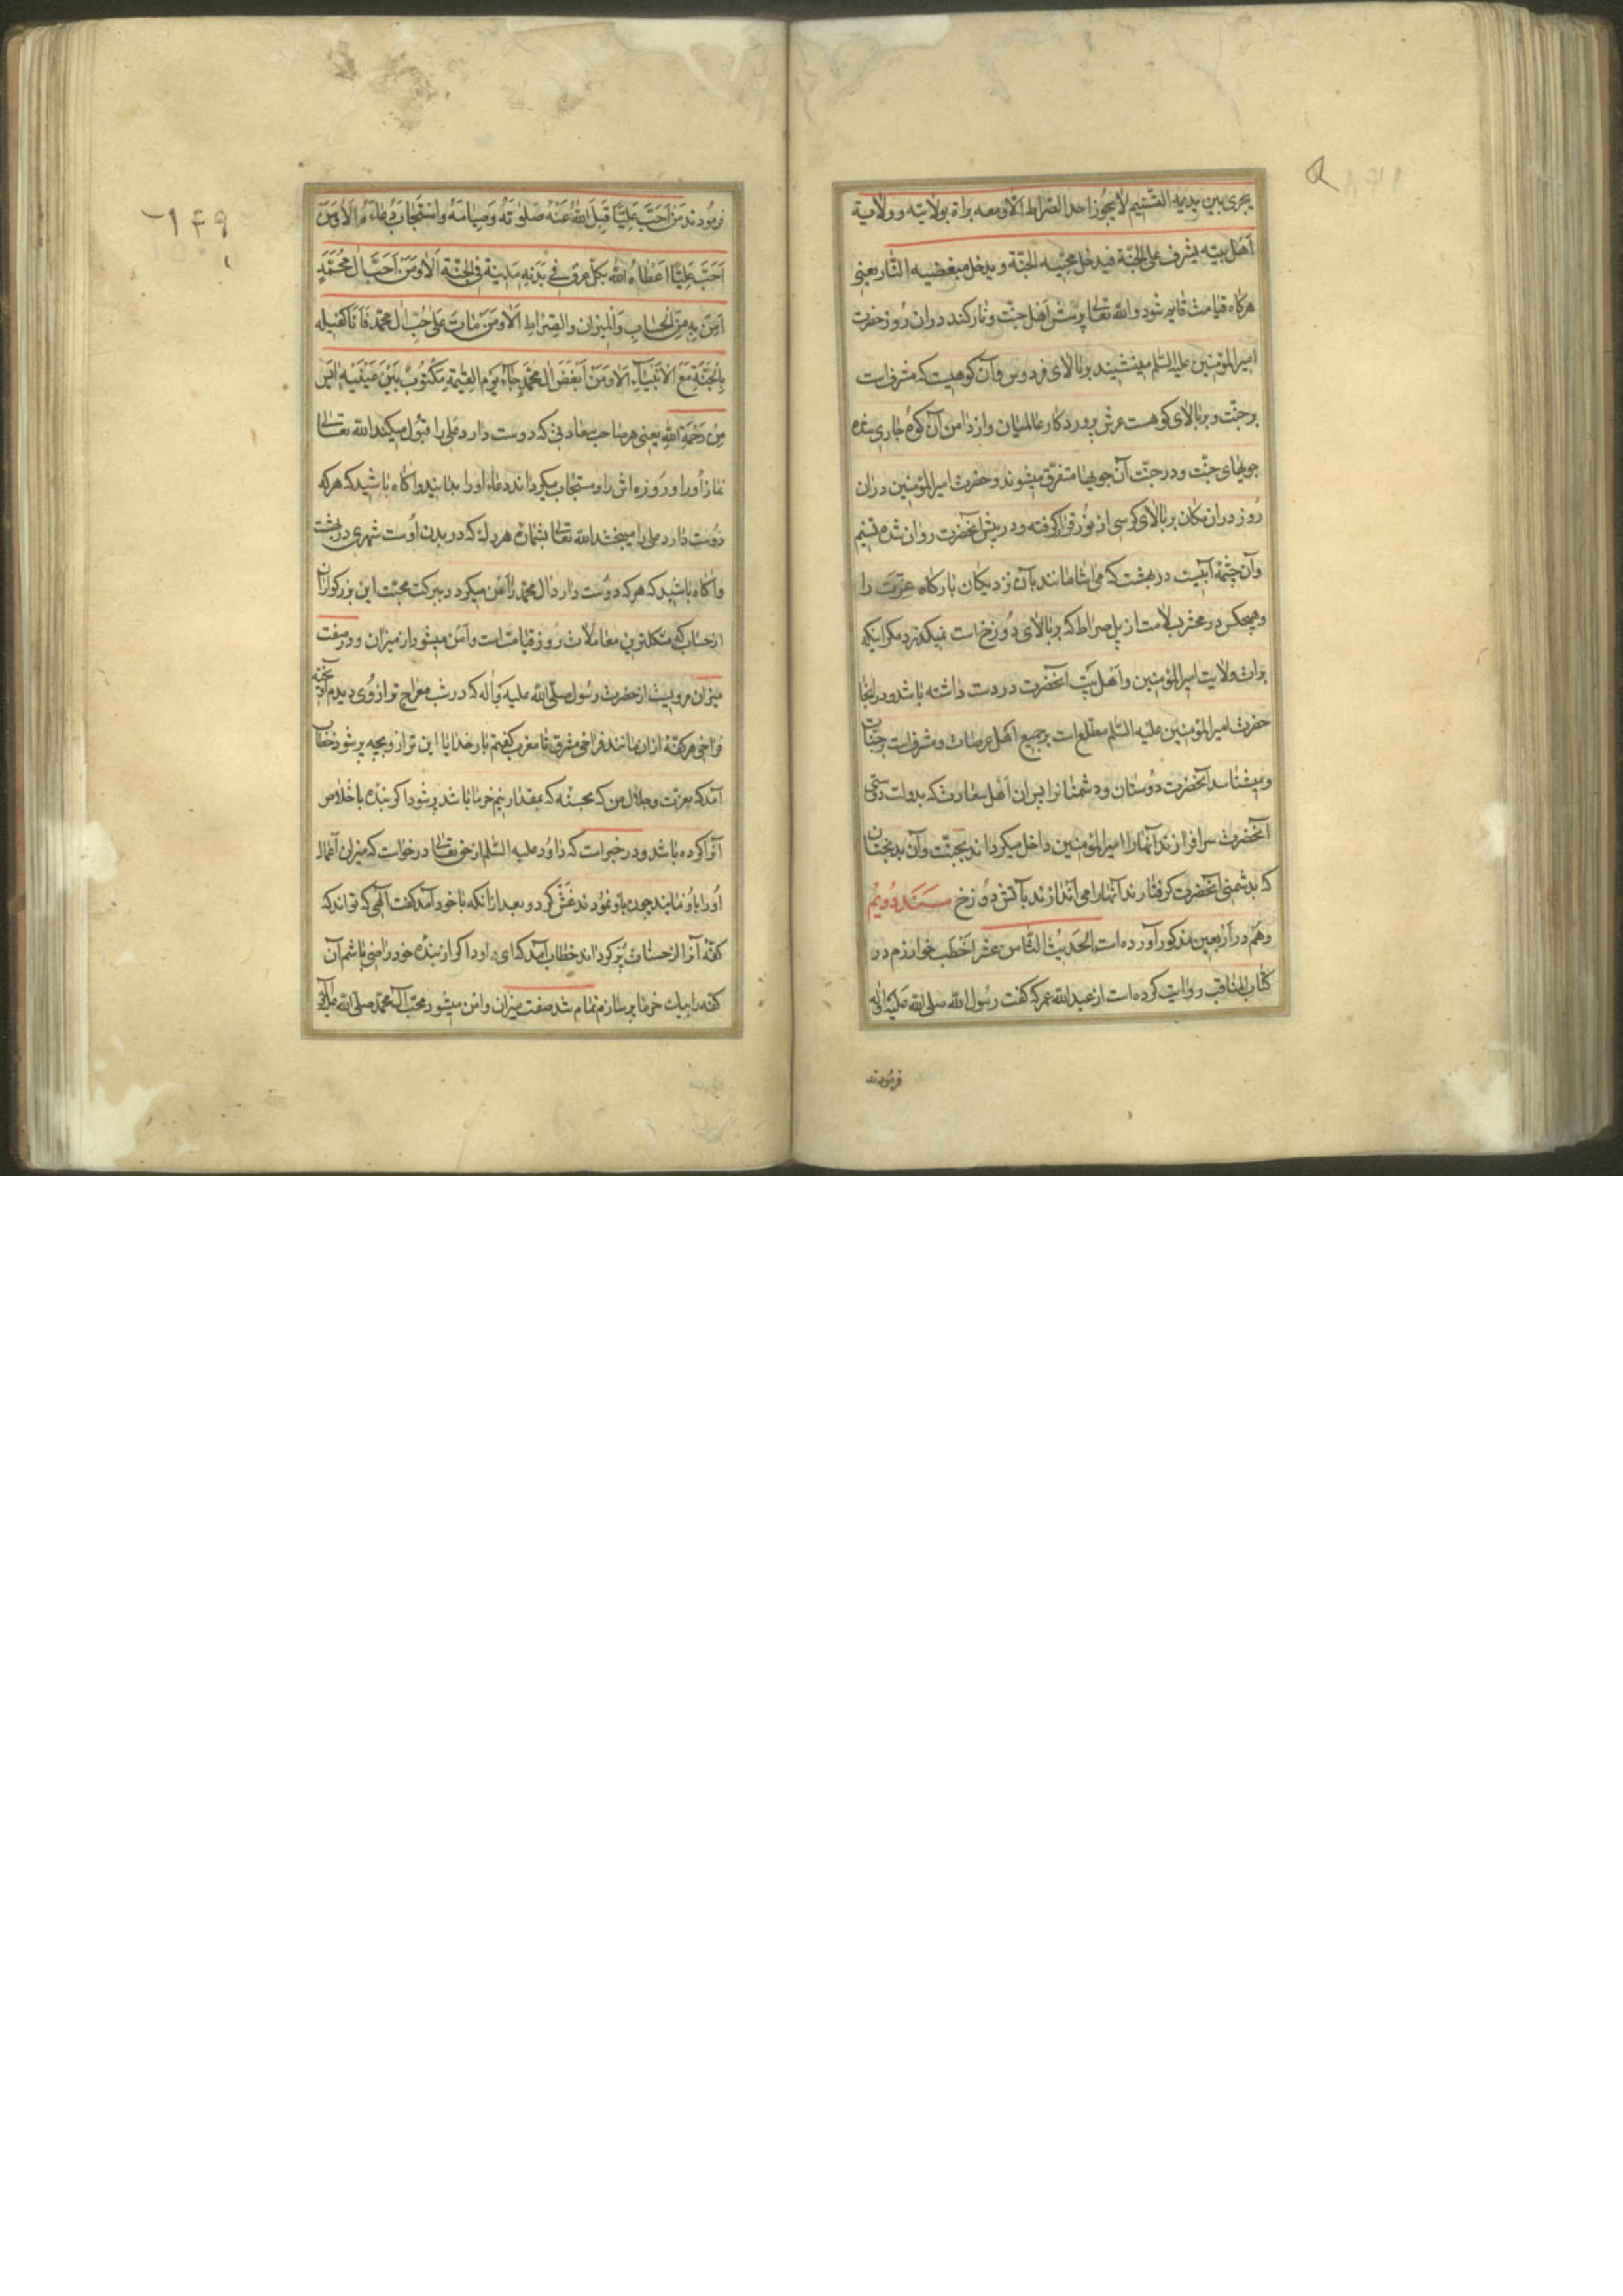 یجری بین یدیه التسنیم لا یجوز احد الصراط الا ومعه براة بولایته وولایة
اهل بیته یشرف علی الجنة فیدخل محبیه الجنة و یدخل مبغضیه النار یعنی
هرکاه قیامت قایم شود والله تعالی پرسش اهل جنت و نار کند دران روز حضرت
امیرالمؤمنین علیه السلم مینشیند بر بالای فردوس وآن کوهیست که مشرف است
بر جنت و بر بالای کوهست عرش پروردکار عالمیان واز دامن آن کوه جاری شده
جویهای جنت ودر جنت آن جویها متفرق میشوند و حضرت امیرالمؤمنین دران
روز دران مکان بر بالای کرسی از نور قرار کرفته ودر پیش آنحضرت روان شده تسنیم
وآن چشمه آبیست در بهشت که می اشامانند بآن نزدیکان بارکاه عزت را
وهیچکس در محترب لامت از پل صراط که بر بالای دوزخ است نمیکذرد مکر اینکه
برات ولایت امیرالمؤمنین واهل بیت آنحضرت در دست داشته باشد ودر انجا
حضرت امیرالمؤمنین علیه السلم مطلع است بر جمیع اهل عرصات و مشرف است بر جنات
ومیشناسد آنحضرت دوستان ودشمنانرا پس ان اهل سعادت که بدولت دوستی
آنحضرت سرافرازند آنها را امیرالمؤمنین داخل میکرداند بجنت وآن بدبختان
که بدشمنی آنحضرت کرفتارند آنها را می اندازند بآتش دوزخ سند دویم
وهم در اربعین مذکور آورده است الحدیث الثامن عشر اخطب خوارزم در
کتاب المناقب روایت کرده است از عبدالله عمر که کفت رسول الله صلی الله علیه واله
فرمودند
۱۴۹
فرمودند من احب علیا قبل الله عنه صلوته وصیامه واستجاب دعاءه الا ومن
احب علیا اعطاه الله بکل عرق فی بدنه مدینة فی الجنة الا ومن احب ال محمد
امن به من الحساب والمیزان والصراط الا ومن مات علی حب ال محمد فانا کفیله
بالجنة مع الانبیاء الا ومن ابغض ال محمد جاء یوم القیمة مکتوب بین عینیه ایس
من رحمة الله یعنی هر صاحب سعادتی که دوست دارد علی را قبول میکند الله تعالی
نماز اورا وروزه اش را ومستجاب میکرداند دعاء اورا بدانید واکاه باشید که هرکه
دوست دارد علی را میبخشد الله تعالی بشماره هر رک که در بدن اوست شهری در بهشت
واکاه باشید که هرکه دوست دارد ال محمد را امن میکردد ببرکت محبت این بزرکواران
از حساب که مشکلترین معاملات روز قیامت است وآمن میشود از میزان ودر صفت
میزان مرویست از حضرت رسول صلی الله علیه واله که در شب معراج ترازوی دیدم آویخته
فراخی هر کفه ازان مانند فراخی مشرق تا مغرب کفتم بار خدایا این ترازو بچه پر شود خطاب
آمد که بعزت وجلال من که بحسنه که بمقدار نیم خرما باشد پر شود اکر بنده با خلاص
آنرا کرده باشد ودر خبر است که داود علیه السلم از حق تعالی درخواست که میزان اعمال
اورا باو نمایند چون باو نمودند غش کرد و بعد ازانکه با خود آمد کفت الهی که تواند که
کفه آنرا از حسنات پر کرداند خطاب آمد که ای داود اکر از بنده خود راضی باشم آن
کفه را بیک خرما پر سازم تمام شد صفت میزان وامن میشود محب آل محمد صلی الله علیه وآله